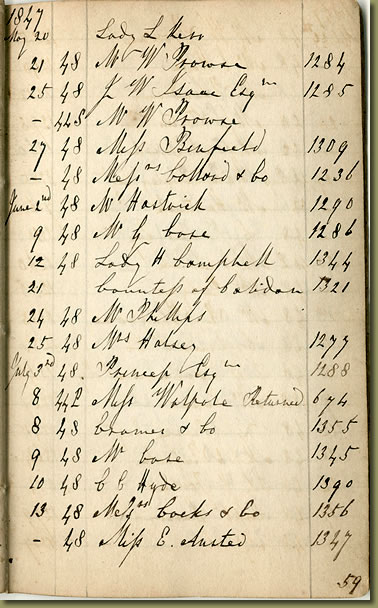 1847
May 20 Lady L Kerr
21 48 Mr W Prowse 1284
25 48 J W Isaac Esqre 1285
- 448 Mr W Prowse
27 48 Miss Benfield 1309
- 48 Messrs Collard & Co 1236
June 2nd 48 Mr Hartwick 1290
9 48 Mr G Case 1286
12 48 Lady H Campbell 1344
21 Countess of Caledon 1321
24 48 Mr Phillips
25 48 Mrs Halsey 1277
July 3rd 48. Princep Esqre 1288
8 442 Miss Walpole Returned 674
8 48 Cramer & Co 1355
9 48 Mr Case 1345
10 48 C C Hyde 1390
13 48 Messrs Cocks & Co 1356
- 48 Miss E. Austed 1347
59